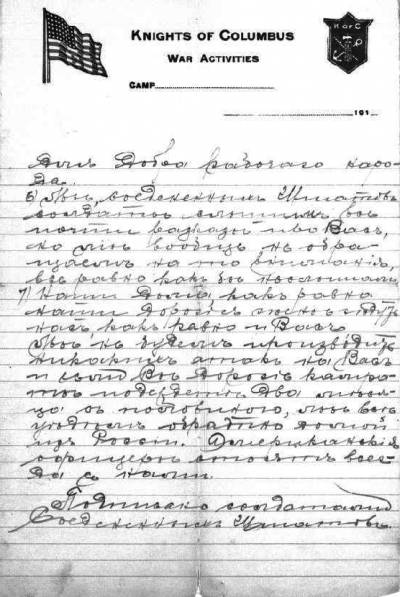 KNIGHTS OF COLUMBUS
WAR ACTIVITIES
K of C
CAMP
191
Для Добра рабочаго наро-
да.
6) Мы, соедененныхъ Штатовъ
солдаты слышимъ
почти про Васъ,
но мы вообще не обра-
щаемъ на то вниманія,
всё равно какъ бы не слышали.
7) Наши какъ равно
наши дорогіе
насъ какъ равно и Васъ
Мы не будемъ производить
никакихъ атакъ на Васъ
и если Вы дорогіе
два мѣся-
ца съ половиною, мы все
уходимъ обратно домой
изъ Россіи. Американскіе
офицеры стоятъ всег-
да съ нами.
Подписано солдатами
Соедененныхъ Штатовъ.